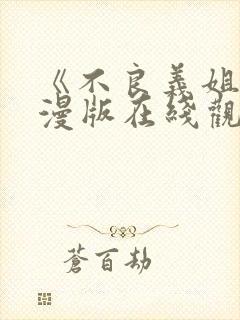 《不良義姐
漫版在綫觀
蒼百劫